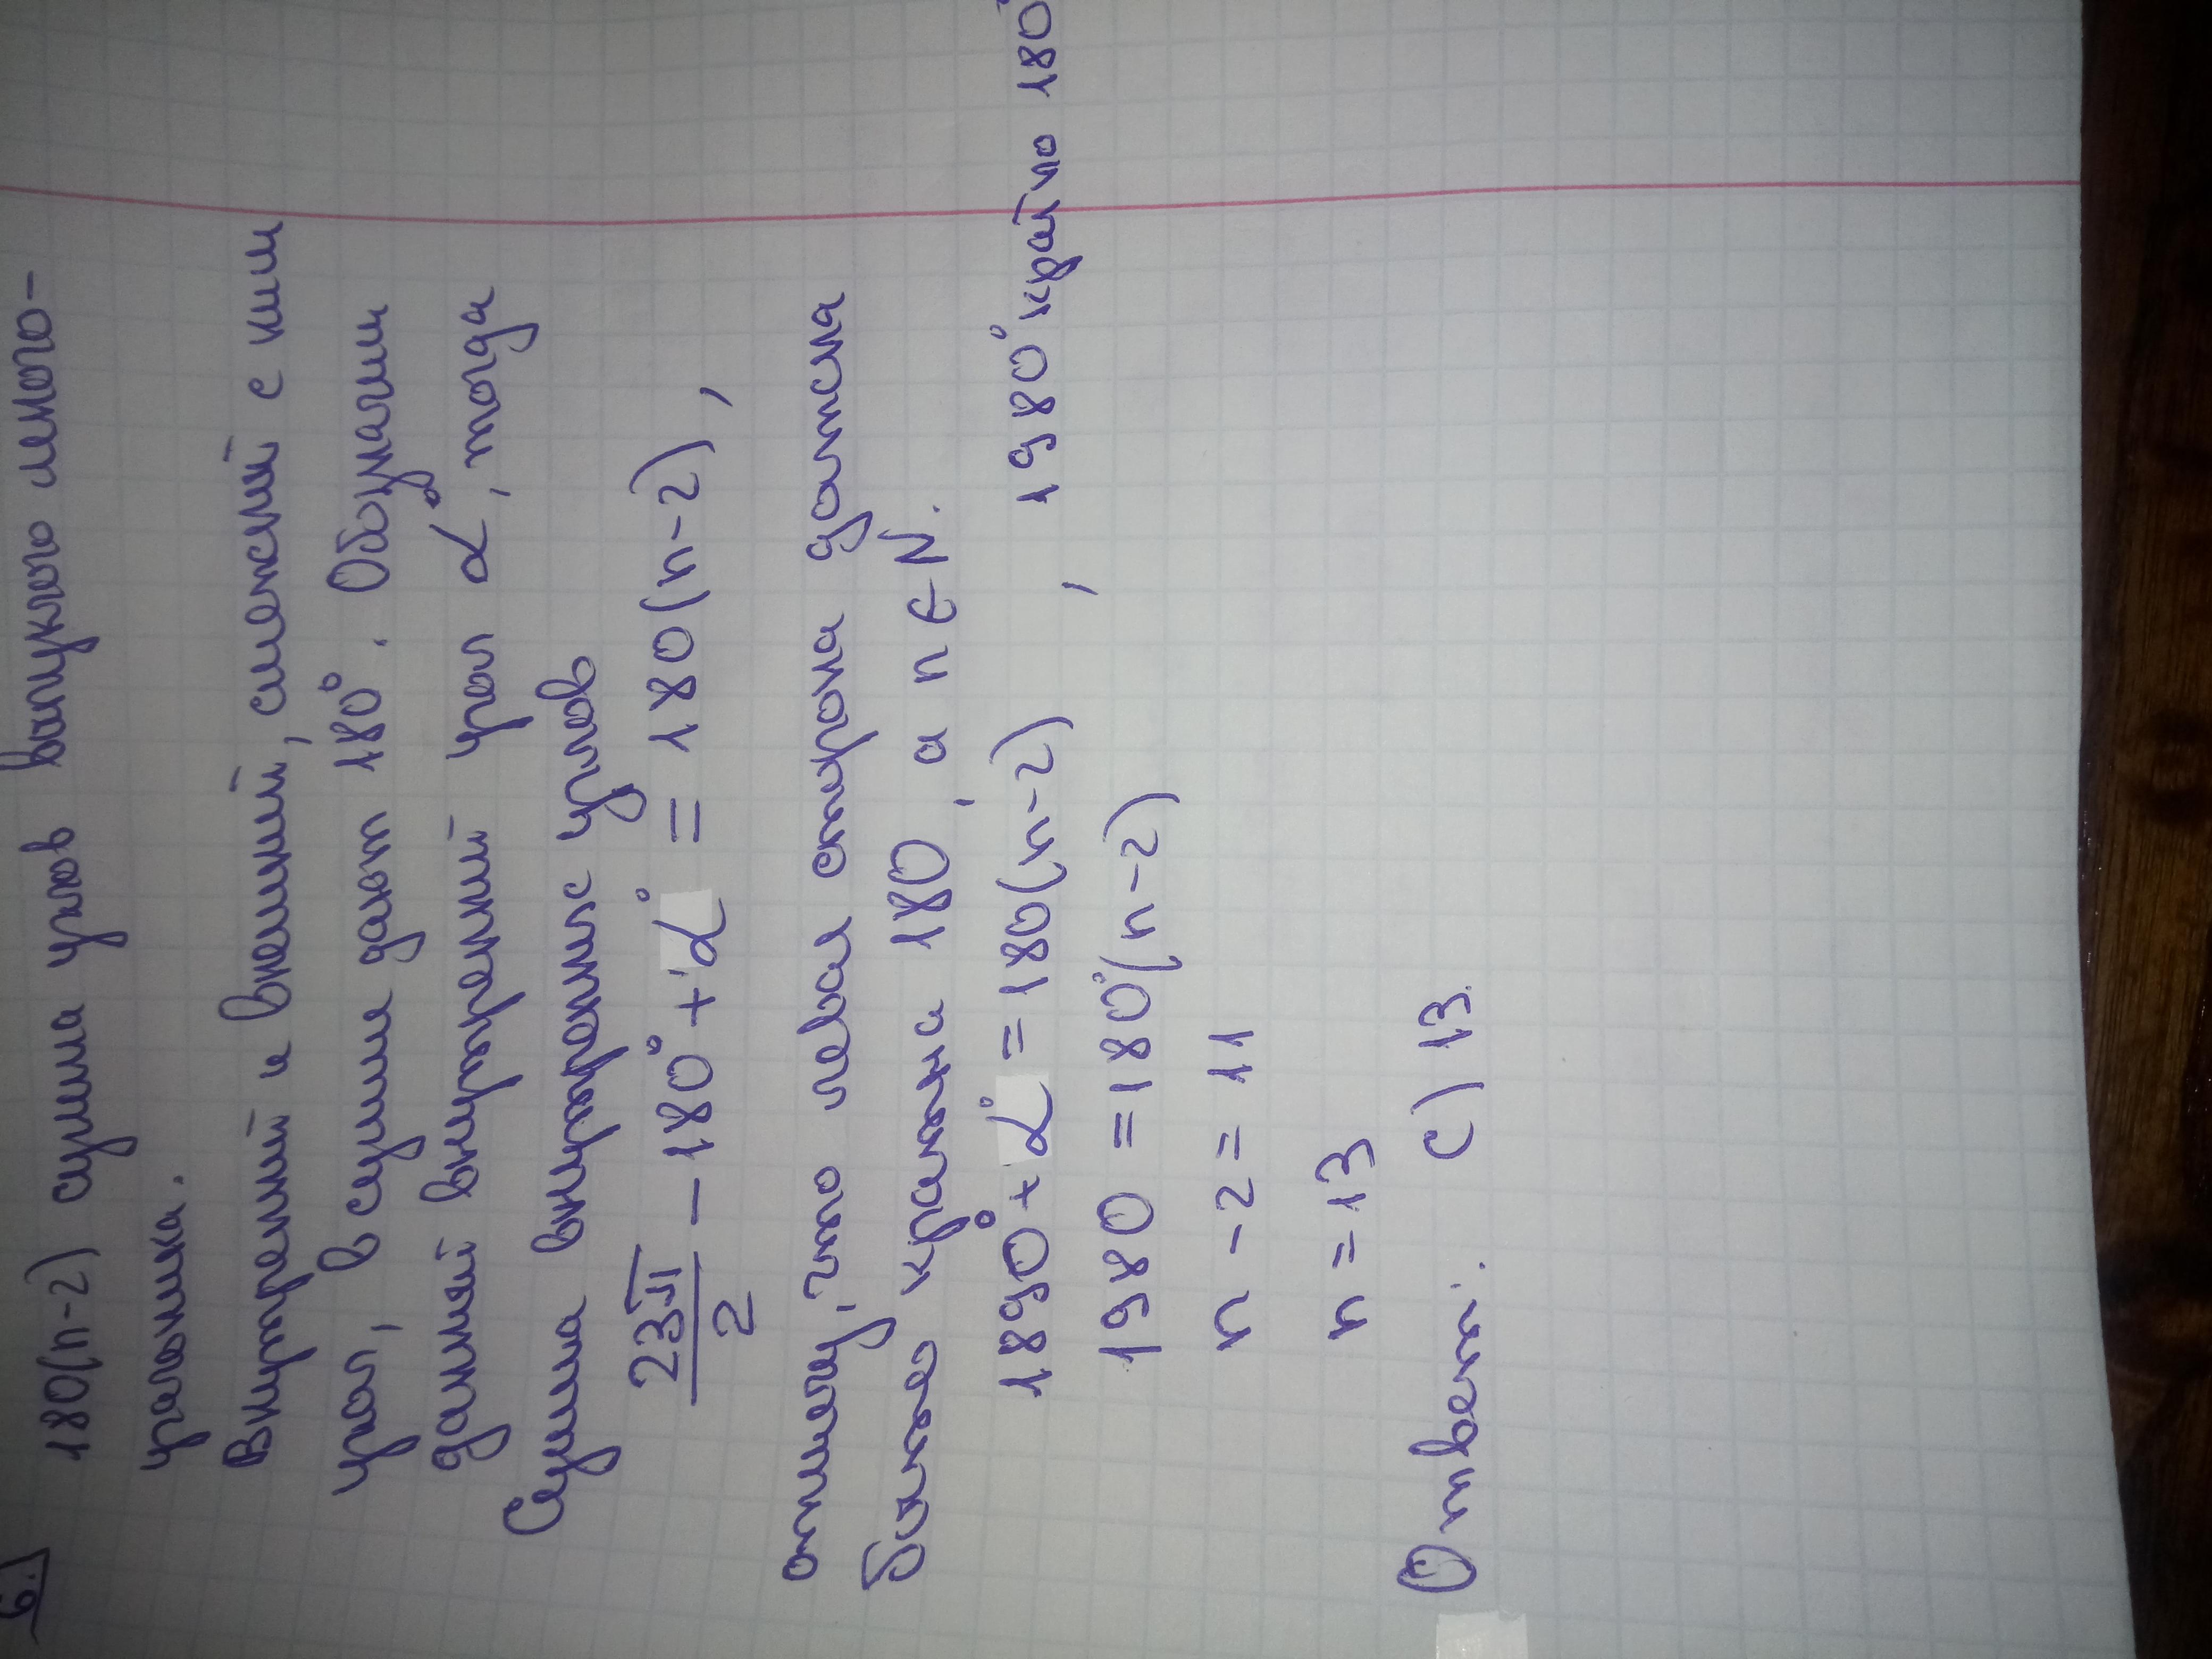 6.
180(n-2) сумма углов выпуклого много-
угольника.
Внутренний и внешний, смежный с ним
угол, в сумме дают 180°. Обозначим
данный внутренний угол α°, тогда
Сумма внутренних углов
23π/2 - 180° + α° = 180(n-2),
отмечу, что левая сторона должна
быть кратна 180, а n ∈ N.
1890° + α° = 180(n-2), 1980° кратно 180°
1980 = 180°(n-2)
n - 2 = 11
n = 13
Ответ: C) 13.